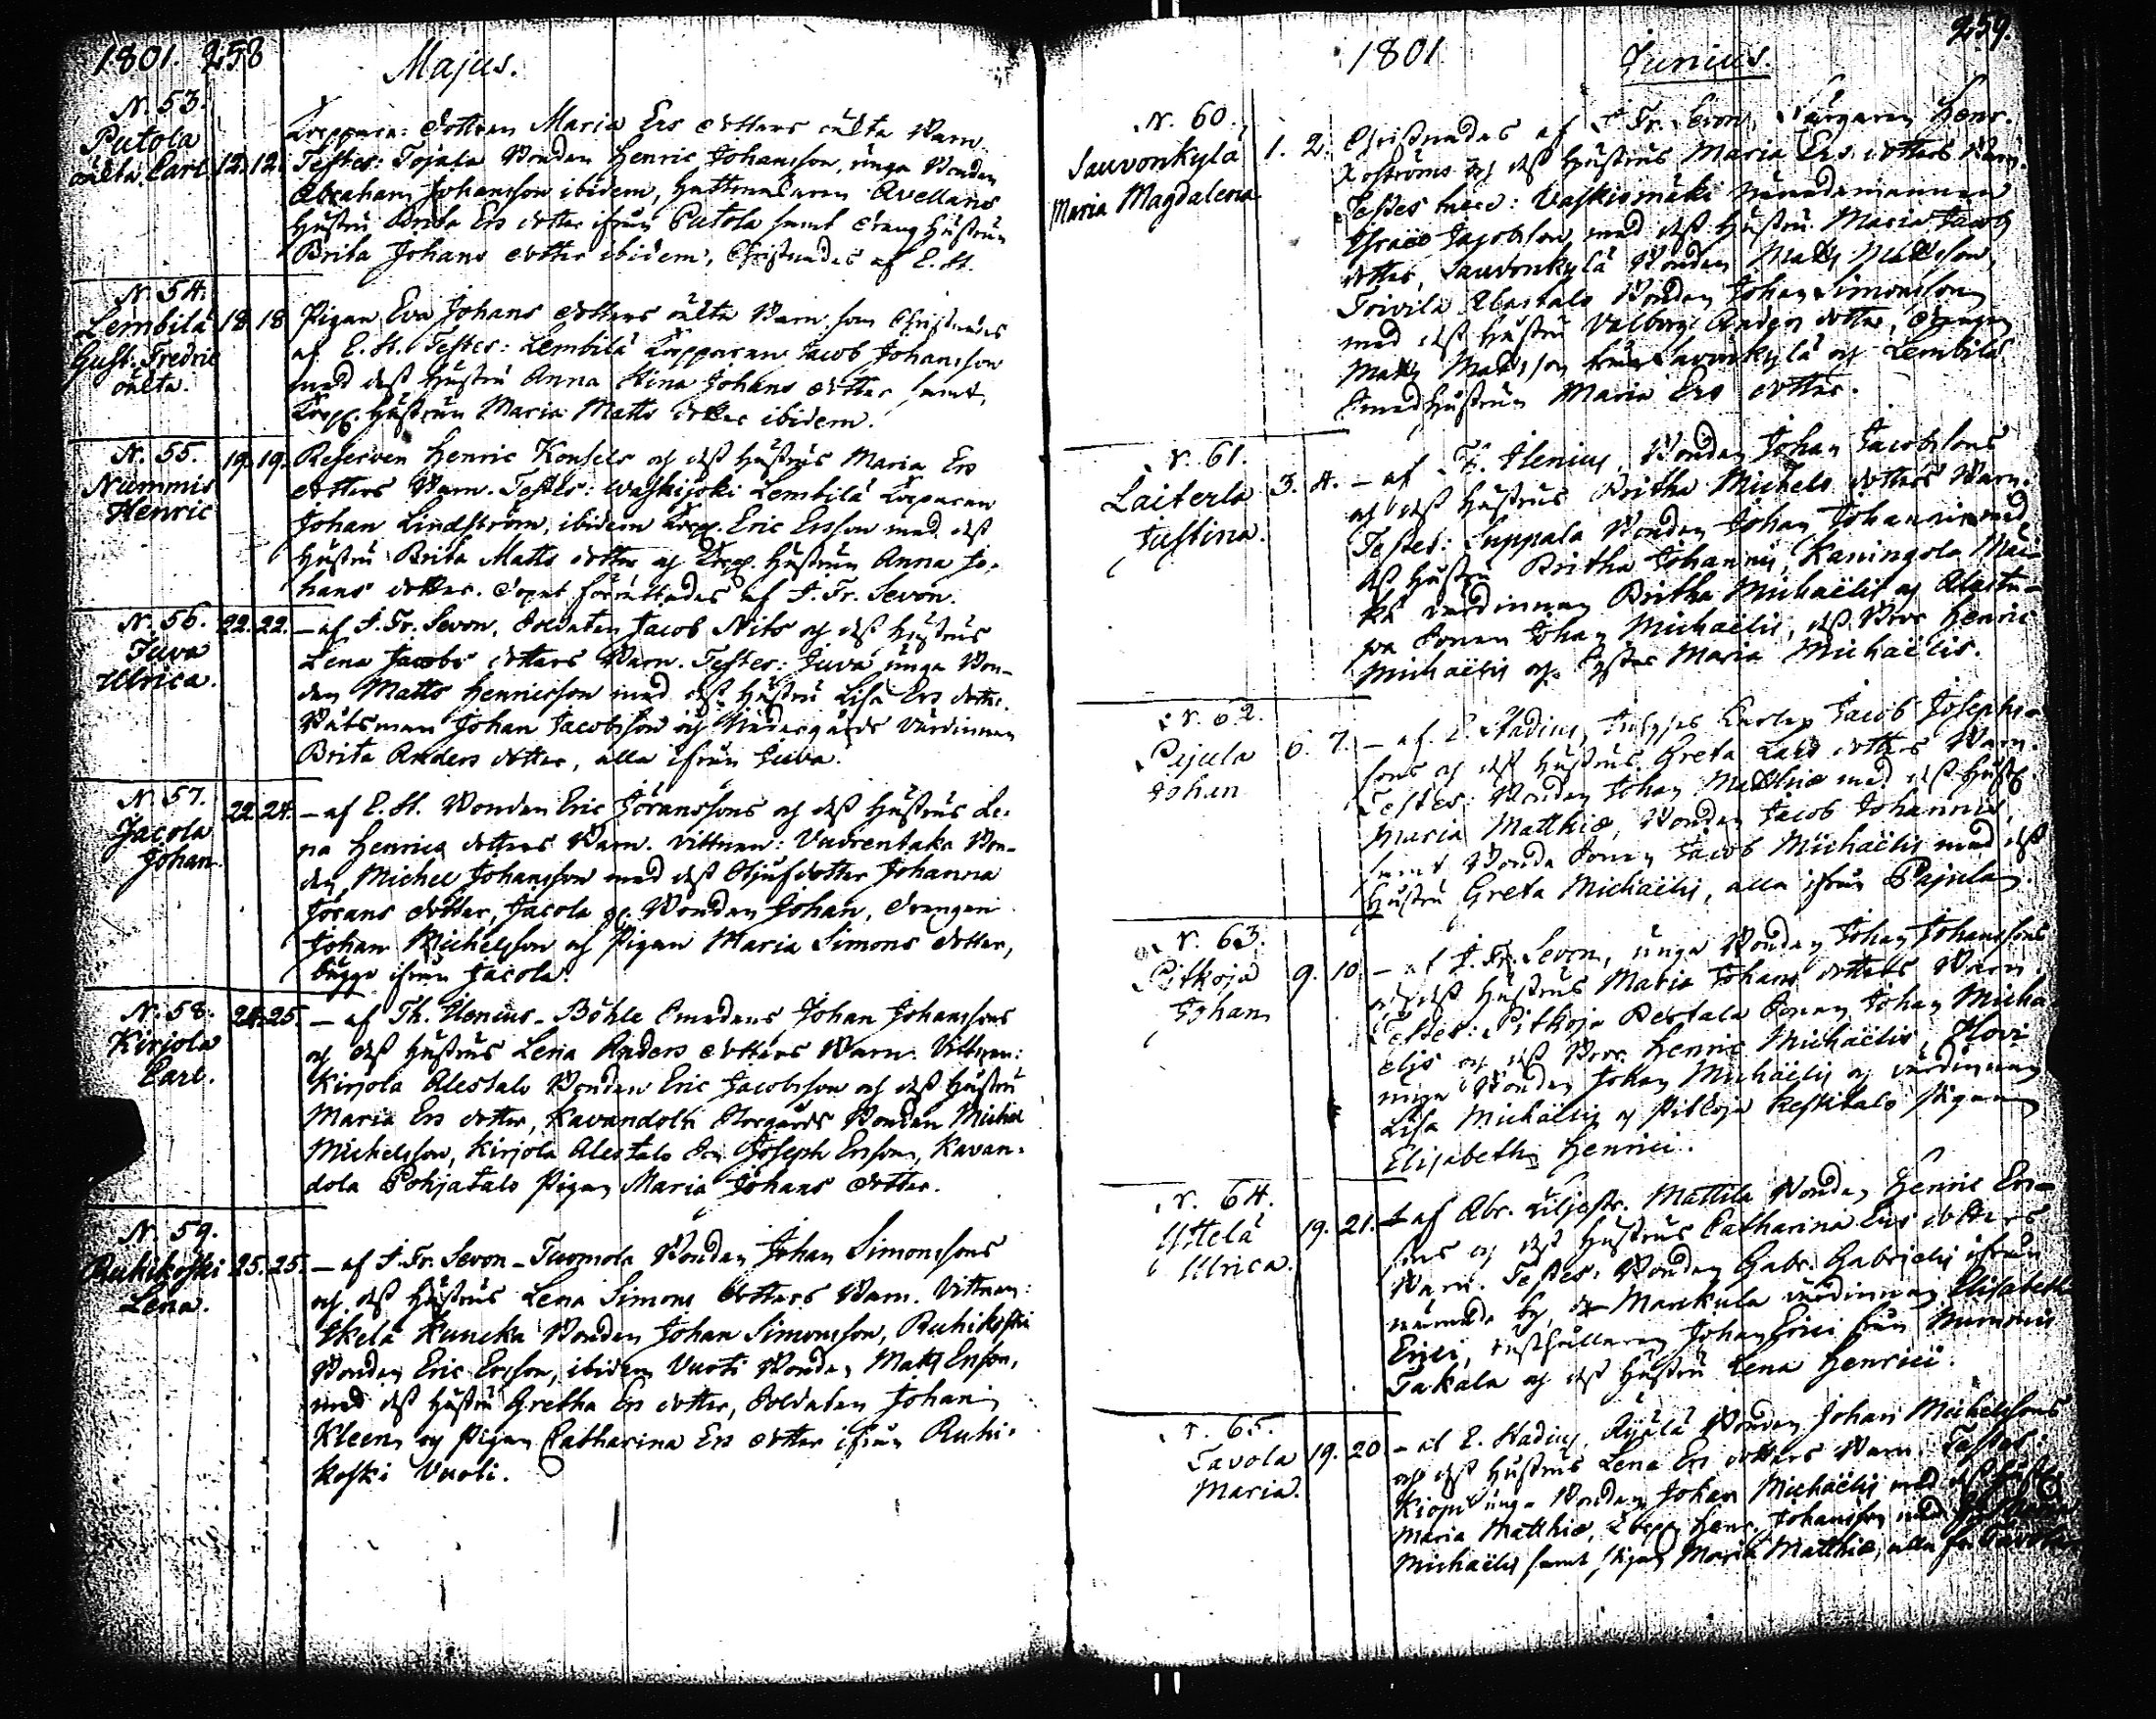 1801. 258 Majus.
N. 53.
Putola
oälta Carl 12. 12.
Kopparen: dottren Maria Ers dotters oälta Barn.
Testes: Tojala Bonden Henric Johansson, unga Bonden
Abraham Johansson ibidem, Hattmakaren Avellans
hustru Brita Ers dotter ifrån Putola samt dräng hustrun
Brita Johans dotter ibidem, Christnades af E. St.
N. 54.
Lembilä 18 18
Gust. Fredric
oälta.
Pigan Eva Johans dotters oälta Barn som Christnades
af E. St. Testes: Lembilä Kopparen Jacob Johansson
med dess hustru Anna Stina Johans dotter samt
Kopp. hustrun Maria Matts dotter ibidem.
N. 55. 19. 19.
Nummis
Henric
Reserven Henric Konsels och dess hustrus Maria Ers
dotters Barn. Testes: Waskijoki Lembilä Kopparen
Johan Lindström, ibidem Kopp. Eric Ersson med dess
hustru Brita Matts dotter och Kopp. hustrun Anna Jo-
hans dotter. Dopet förrättades af J. Fr. Sevon.
N. 56. 22. 22.
Juva
Ulrica.
– af J. Fr. Sevon, Soldaten Jacob Nits och dess hustrus
Lena Jacobs dotters Barn. Testes: Juva unga Bon-
den Matts Henricsson med dess hustru Lisa Ers dotter.
Båtsman Johan Jacobsson och Nedergårds värdinnan
Brita Anders dotter, alla ifrån Juva.
N. 57. 22. 24.
Jacola
Johan.
– af E. St. Bonden Eric Jöranssons och dess hustrus Le-
na Henrics dotters Barn. Vittnen: Vuorentaka Bon-
den Michel Johansson med dess Stjufdotter Johanna
Jörans dotter, Jacola gl. Bonden Johan, drängen
Johan Michelsson och Pigan Maria Simons dotter,
bägge ifrån Jacola.
N. 58. 24. 25.
Kirjola
Carl.
– af Th. Stenius – Böhle Smedens Johan Johanssons
och dess hustrus Lena Anders dotters Barn. Vittnen:
Kirjola Alestalo Bonden Eric Jacobsson och dess hustru
Maria Ers dotter, Kavandola Storgårds Bonden Michel
Michelsson, Kirjola Alestalo Son Joseph Ersson, Kavan-
dola Pohjatalo Pigan Maria Johans dotter.
N. 59.
Ruhikoski 25. 25.
Lena.
– af J. Fr. Sevon – Tuomola Bonden Johan Simonssons
och dess hustrus Lena Simons dotters Barn. Vittnen:
Ikelä Kuncka Bonden Johan Simonsson, Ruhikoski
Bonden Eric Ersson, ibidem Vuoti Bonden Matts Ersson,
med dess hustru Gretha Ers dotter, Soldaten Johan
Kleen och Pigan Catharina Ers dotter ifrån Ruhi-
koski Vuoli.
1801 Junius. 259.
N. 60.
Sauvonkylä 1. 2.
Maria Magdalena.
Christnades af J. Fr. Sevon, Färgaren Henr.
och dess hustrus Maria Ers dotters Barn.
Testes: Vaskismäki nämndemannen
Jacobsson med dess hustru Maria Jacobs
dotter, Sauvonkylä Bonden Matts Mattsson,
Toivila Alastalo Bonden Johan Simonsson
med dess hustru Valborg Anders dotter, drängen
Matts Mattsson från Sauvonkylä och Lembilä
Smedhustrun Maria Ers dotter.
N. 61.
Laiterla 3. 4.
Justina.
– af Th. Stenius, Bonden Johan Jacobssons
och dess hustrus Britha Michels dotters Barn.
Testes: Suppala Bonden Johan Johannis med
dess hustru Britha Johannis, Kaningola
värdinnan Britha Michaëlis och
Sonen Johan Michaëlis, dess Bror Henric
Michaëlis och Syster Maria Michaëlis.
N. 62.
Pajula 6. 7.
Johan
– af E. Stadius, Jacob Josephs-
sons och dess hustrus Greta Lars dotters Barn.
Testes: Bonden Johan Matthiæ med dess hustru
Maria Matthiæ, Bonden Jacob Johannis,
samt Bonde Sonen Jacob Michaëlis med dess
hustru Greta Michaëlis, alla ifrån Pajula.
N. 63.
Pitkoja 9. 10
Johan
– af J. Fr. Sevon, unga Bonden Johan Johanssons
och dess hustrus Maria Johans dotters Barn.
Testes: Pitkoja Pertala Sonen Johan Micha-
elis och dess Bror Henric Michaëlis,
Bonden Johan Michaëlis och värdinnan
Lisa Michaëlis och Pitkoja Keskitalo Pigan
Elisabeth Henrici.
N. 64.
Uttelä 19. 21.
Ulrica.
– af Abr. Liljestr. Mattila Bonden Henric Ers-
sons och dess hustrus Catharina Ers dotters
Barn. Testes: Bonden Gabr. Gabrielis ifrån
nämnde by, Mankula värdinnan Elisabeth
Erici, rusthållaren Johan Erici från Nummis
Takala och dess hustru Lena Henrici.
N. 65.
Tavola 19. 20
Maria.
– af E. Stadius, Äijälä Bonden Johan Michelssons
och dess hustrus Lena Ers dotters Barn. Testes:
Kiopi unga Bonden Johan Michaëlis med dess hustru
Maria Matthiæ, Kopp. Henr. Johansson med
Michaëlis samt Pigan Maria Matthiæ, alla fr. Tavola